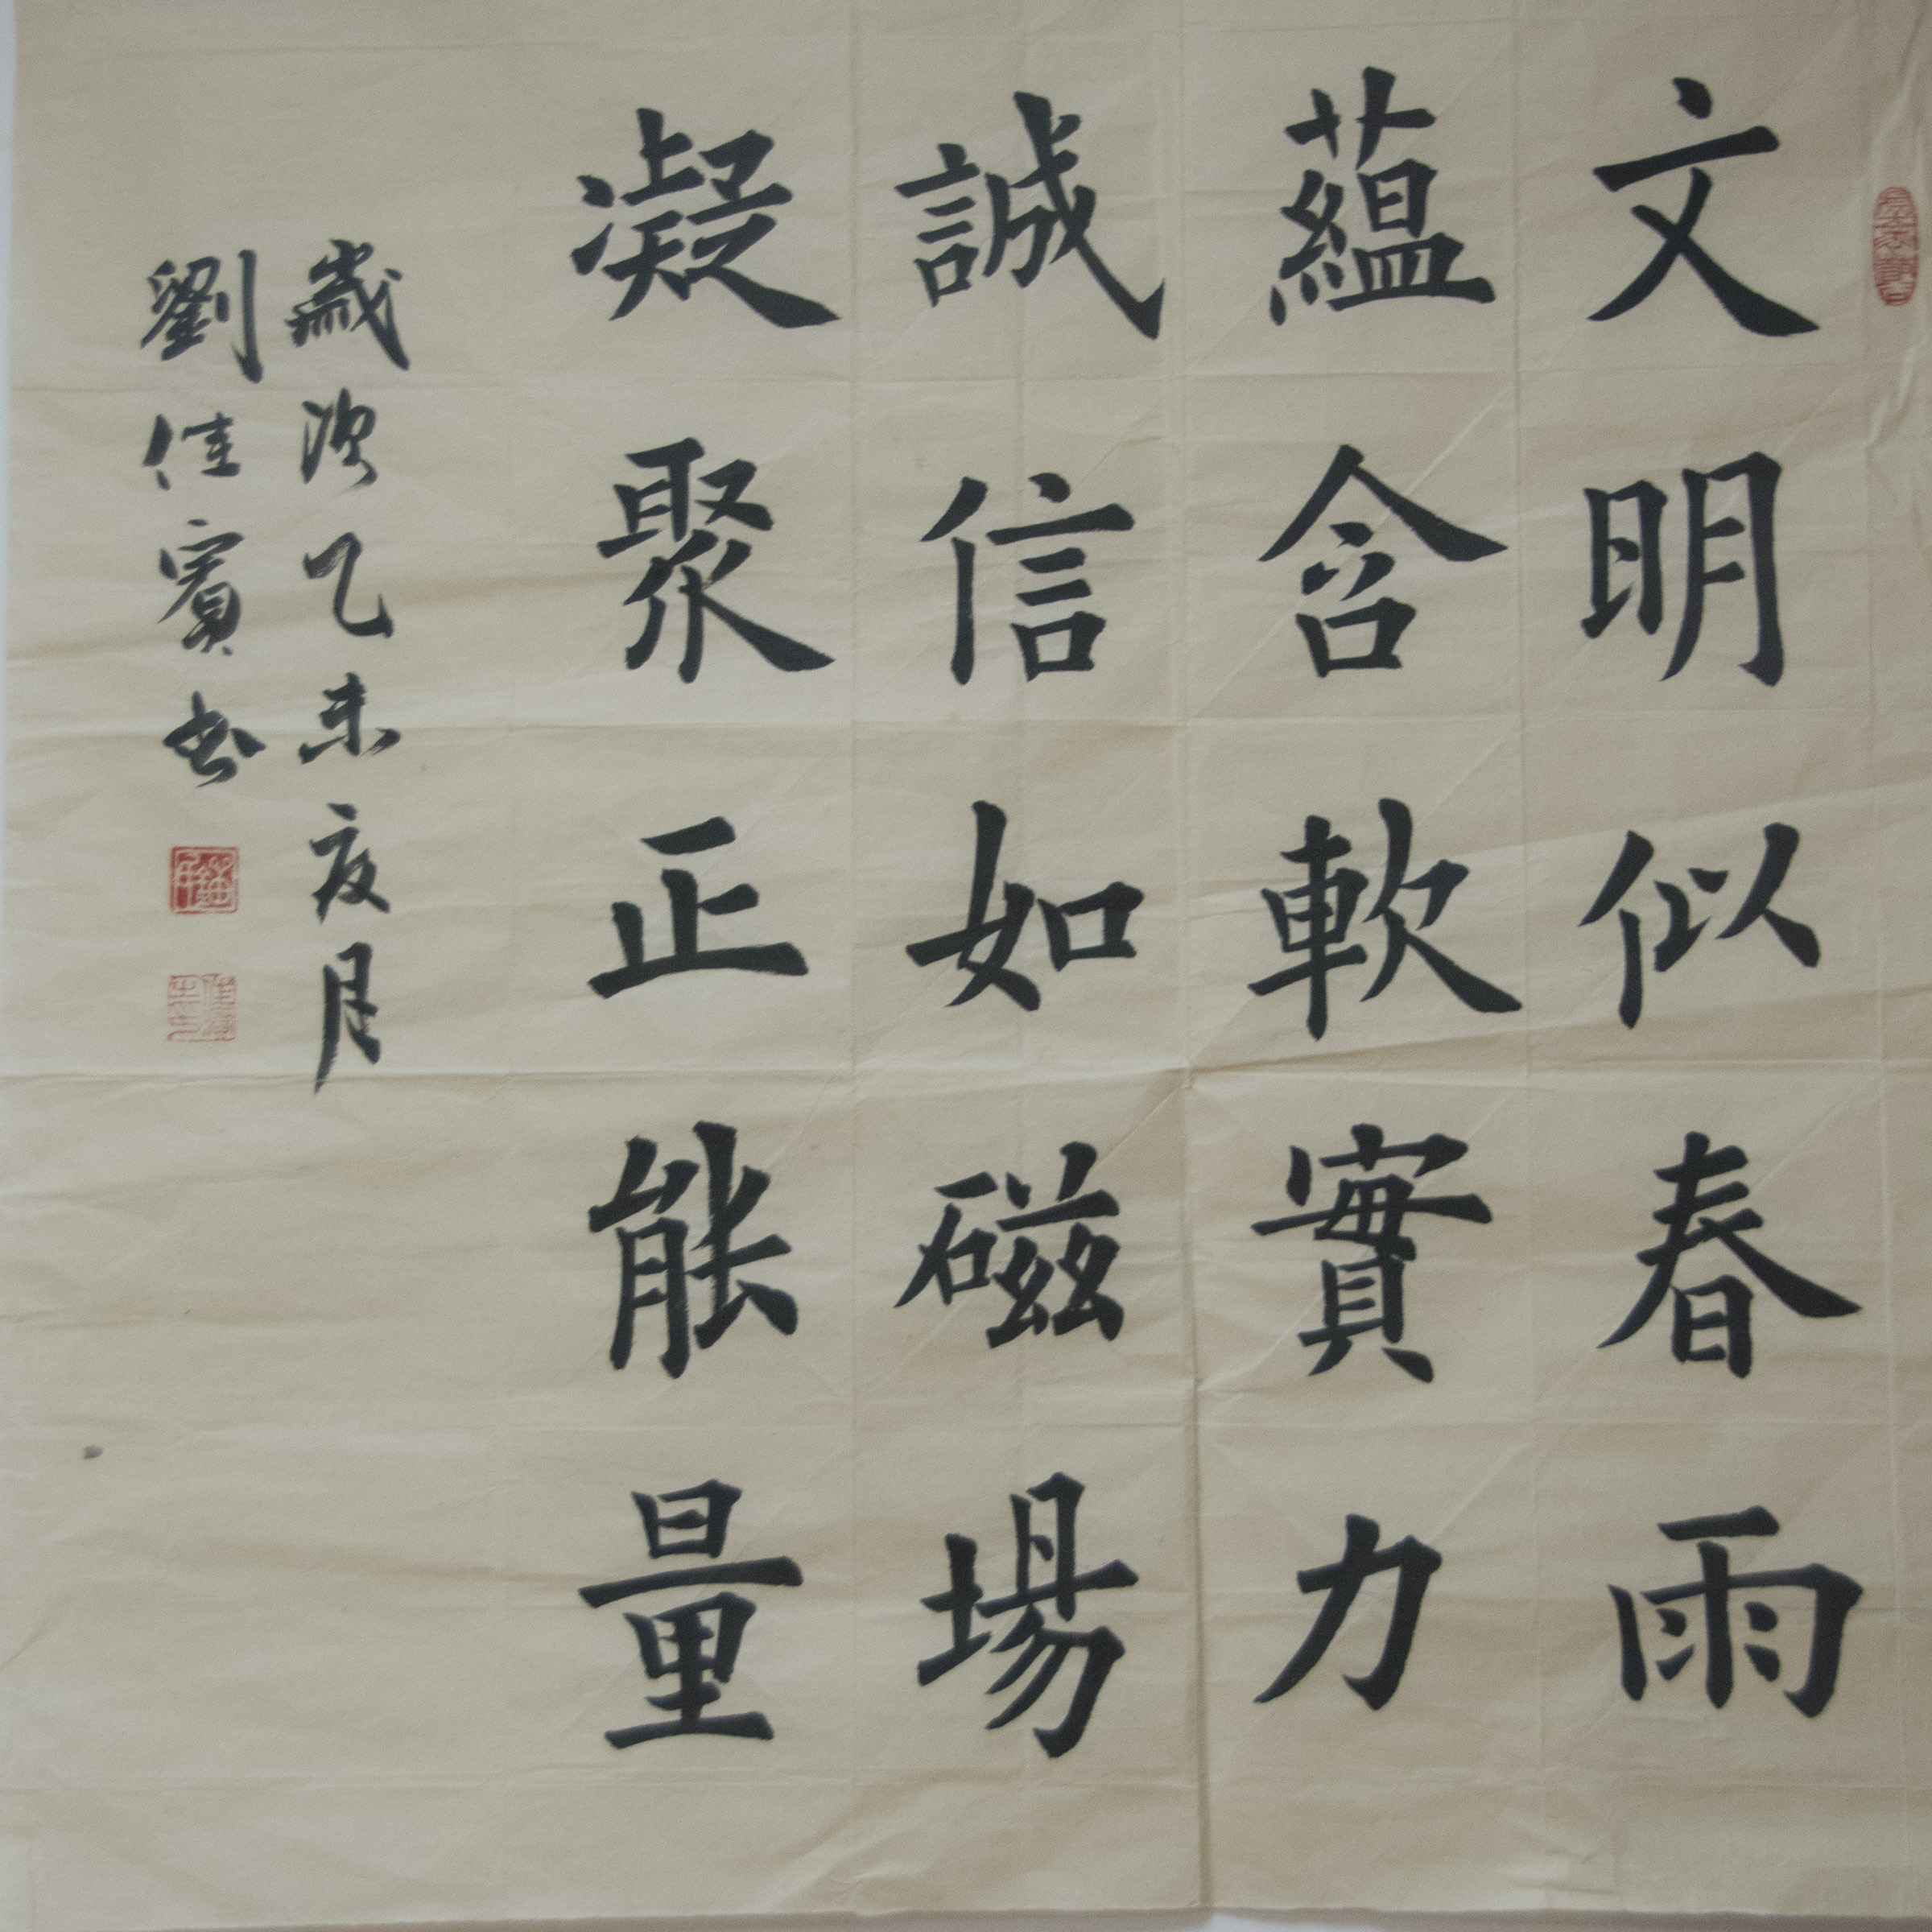 文明似春雨
蘊含軟實力
誠信如磁場
凝聚正能量
歲次乙未夏月
劉佳賓书